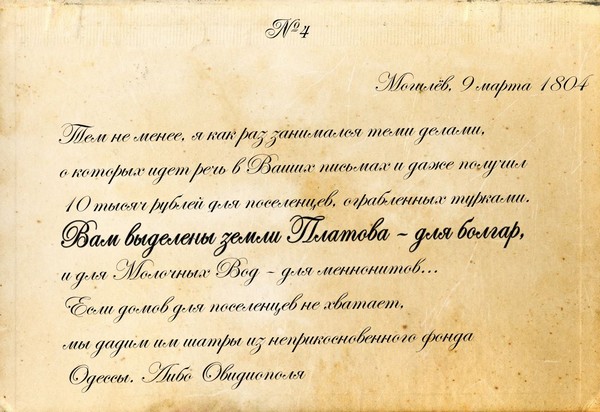 №4
Могилёв, 9 марта 1804
Тем не менее, я как раз занимался теми делами,
о которых идет речь в Ваших письмах и даже получил
10 тысяч рублей для поселенцев, ограбленных турками.
Вам выделены земли Платова - для болгар,
и для Молочных Вод - для меннонитов...
Если домов для поселенцев не хватает,
мы дадим им шатры из неприкосновенного фонда
Одессы. Либо Овидиополя